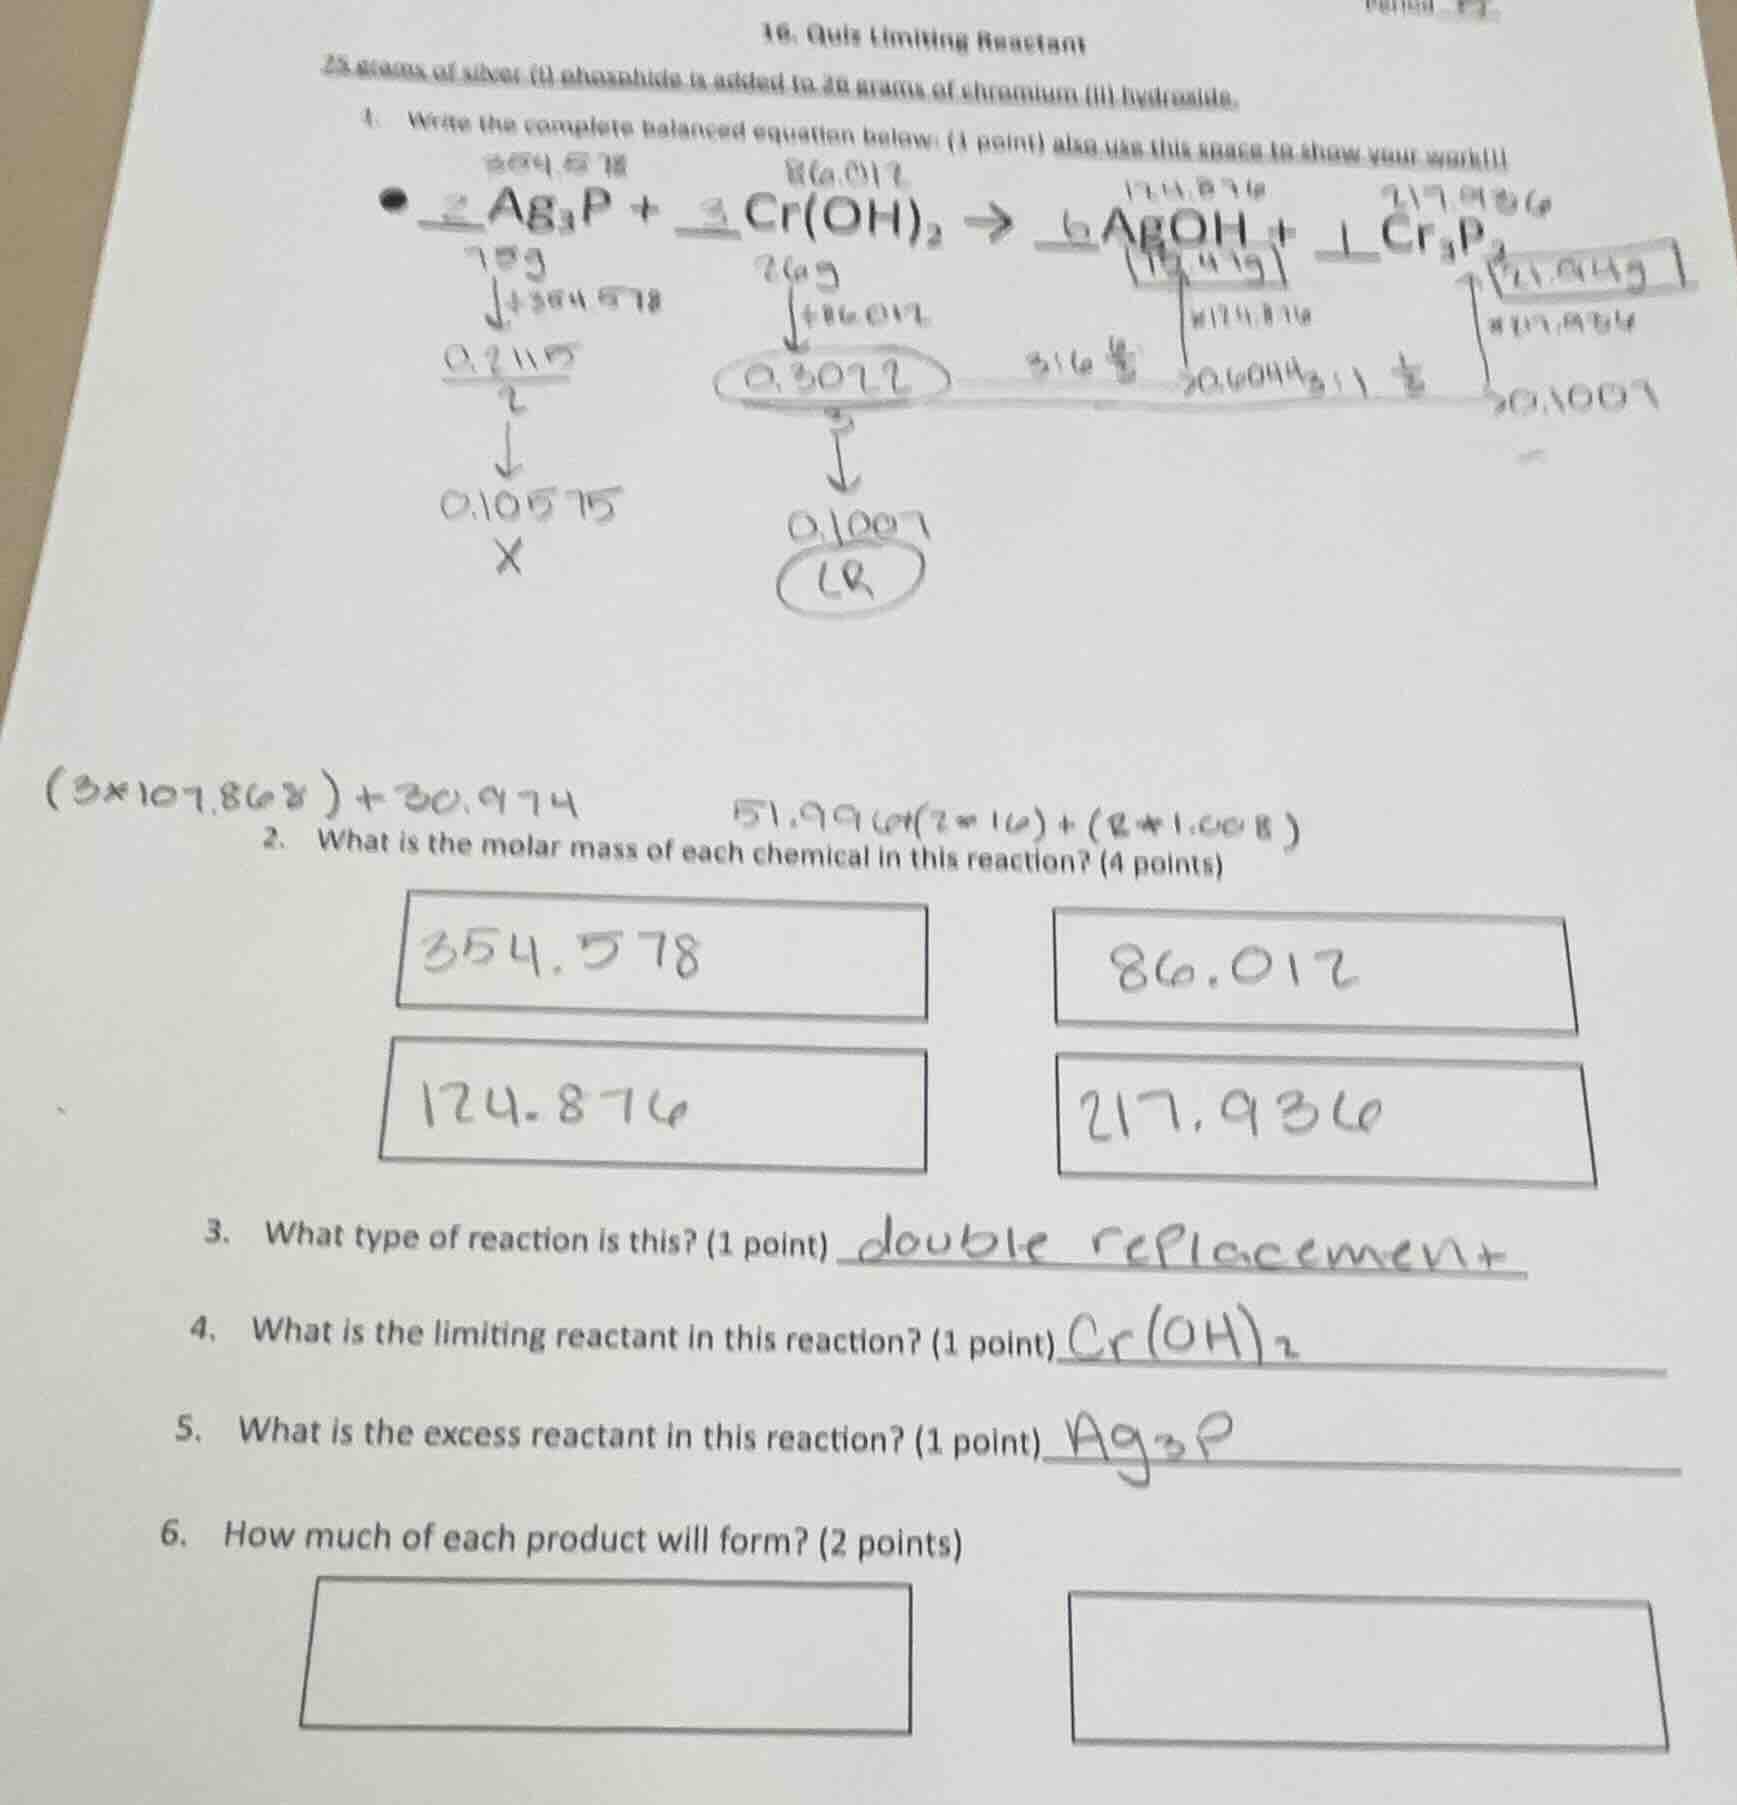 16. Quiz Limiting Reactant
grams of silver (I) phosphide is added to 26 grams of chromium (II) hydroxide.
1. Write the complete balanced equation below: (1 point) also use this space to show your work!!!
354.578 86.012 124.876 217.936
2 Ag₃P + 3 Cr(OH)₂ → 6 AgOH + 1 Cr₃P₂
75g 26g
÷354.578 ÷86.012 *124.876 *217.936
0.2115 0.3022 3:6 6/3 0.6044 3:1 1/3 0.1007
2 3
0.10575 0.1007
X LR
(3*107.868)+30.974 51.996+(2*16)+(2*1.008)
2. What is the molar mass of each chemical in this reaction? (4 points)
354.578 86.012
124.876 217.936
3. What type of reaction is this? (1 point) double replacement
4. What is the limiting reactant in this reaction? (1 point) Cr(OH)₂
5. What is the excess reactant in this reaction? (1 point) Ag₃P
6. How much of each product will form? (2 points)